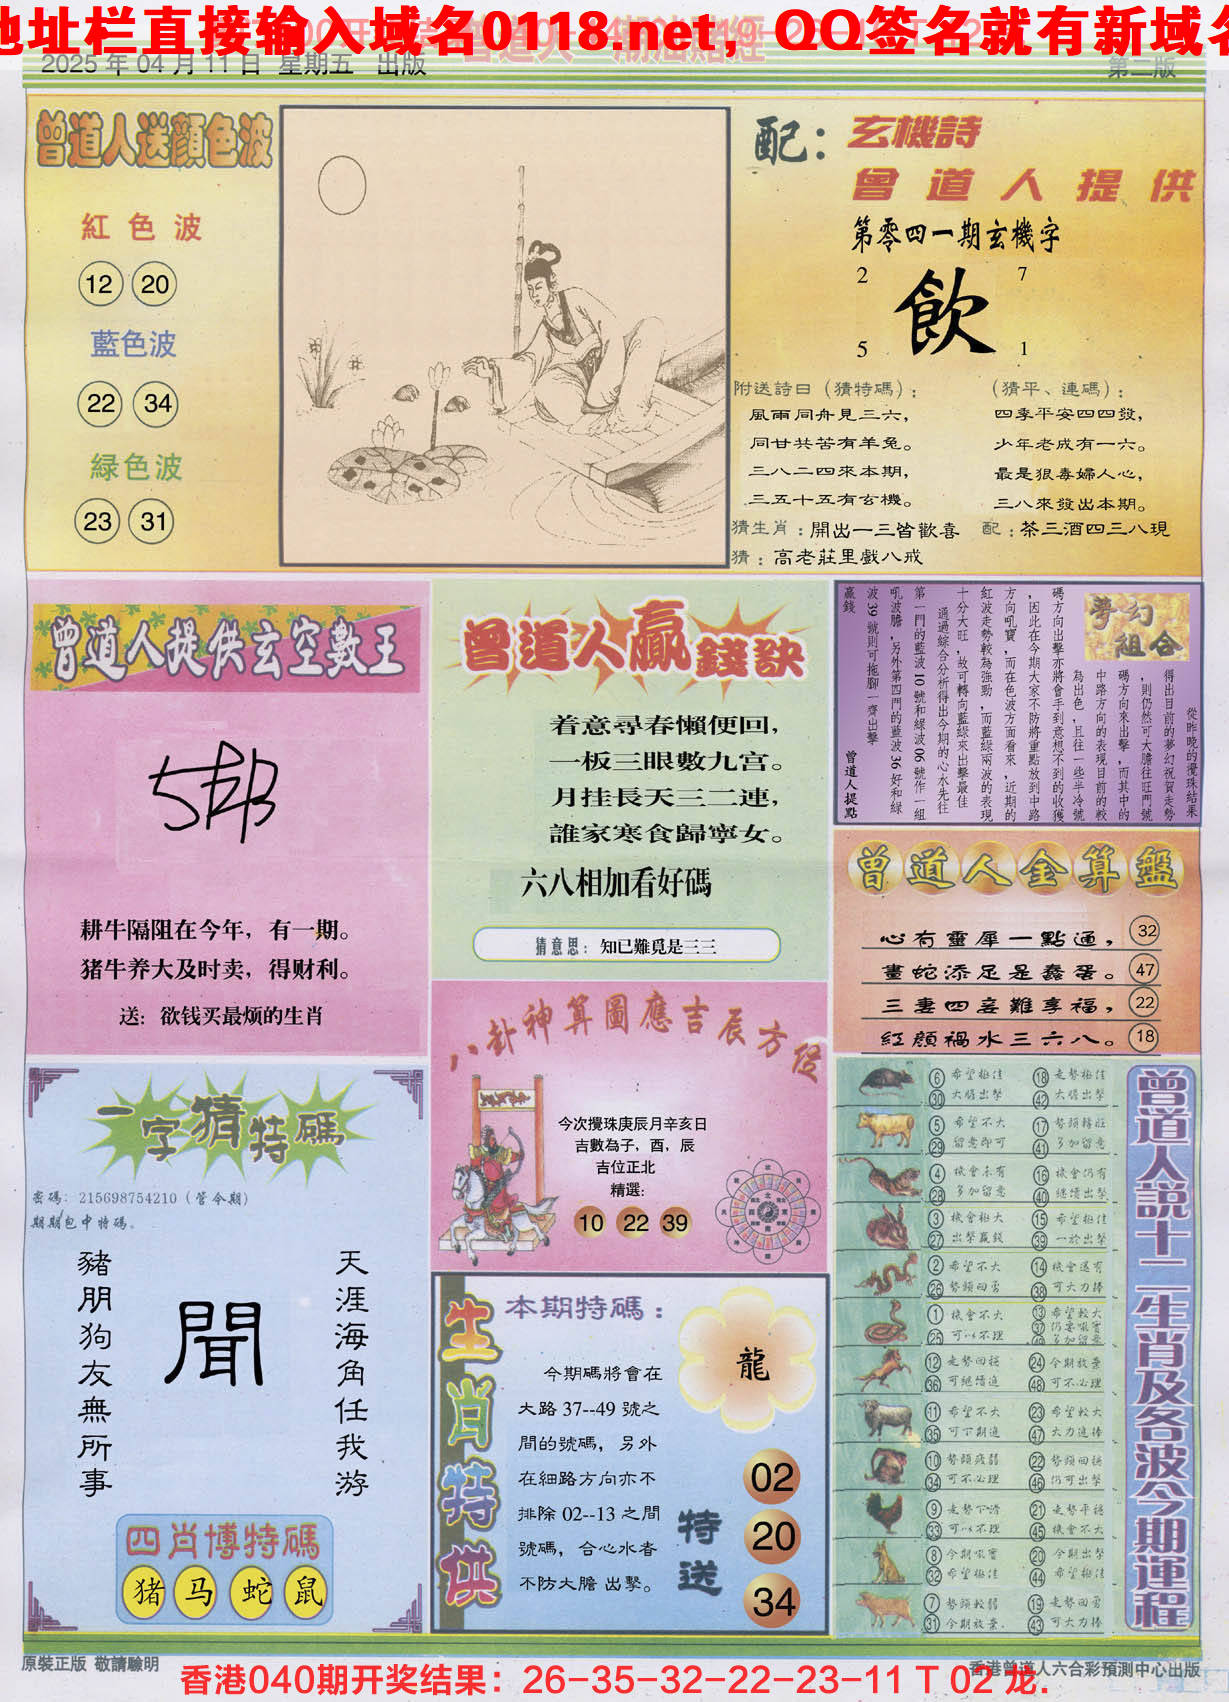 地址栏直接输入域名0118.net，QQ签名就有新域名
2025 年 04 月 11 日  星期五  出版
第二版
曾道人送顔色波
紅 色 波
12 20
藍色波
22 34
緑色波
23 31
配：
玄機詩
曾道人提供
第零四一期玄機字
2 7
飲
5 1
附送詩曰（猜特碼）：
風雨同舟見三六，
同甘共苦有羊兔。
三八二四來本期，
三五十五有玄機。
（猜平、連碼）：
四季平安四四發，
少年老成有一六。
最是狠毒婦人心，
三八來發出本期。
猜生肖：開出一三皆歡喜
配：茶三酒四三八現
猜：高老莊里戲八戒
曾道人提供玄空數王
耕牛隔阻在今年，有一期。
猪牛养大及时卖，得财利。
送：欲钱买最烦的生肖
曾道人贏錢訣
着意尋春懶便回，
一板三眼數九宫。
月挂長天三二連，
誰家寒食歸寧女。
六八相加看好碼
猜意思：知已難覓是三三
夢幻
組合
從昨晚的攪珠結果
得出目前的夢幻祝賀走勢
，則仍然可大膽往旺門號
碼方向來出擊，而其中的
中路方向的表現目前的較
為出色，且往一些半冷號
碼方向出擊亦將會手到意想不到的收獲
，因此在今期大家不防將重點放到中路
方向吼寶，而在色波方面看來，近期的
紅波走勢較為強勁，而藍綠兩波的表現
十分大旺，故可轉向藍綠來出擊最佳
通過綜合分析得出今期的心水先往
第一門的藍波 10 號和綠波 06 號作一組
吼波膽，另外第四門的藍波 36 好和綠
波 39 號則可拖腳一齊出擊
贏錢
曾道人提點
曾道人金算盤
心有靈犀一點通， 32
畫蛇添足是蠢蛋。 47
三妻四妾難享福， 22
紅顔禍水三六八。 18
八卦神算圖應吉辰方位
今次攪珠庚辰月辛亥日
吉數為子，酉，辰
吉位正北
精選：
10 22 39
一字猜特碼
密碼：215698754210（管今期）
期期包中特碼。
天涯海角任我游
聞
豬朋狗友無所事
四肖博特碼
猪 马 蛇 鼠
生肖特供
本期特碼：
龍
今期碼將會在
大路 37--49 號之
間的號碼，另外
在細路方向亦不
排除 02--13 之間
號碼，合心水者
不防大膽 出擊。
特送
02
20
34
曾道人説十二生肖及各波今期運程
6 希望極佳 18 走勢極佳
30 大膽出擊 42 大膽出擊
5 希望不大 17 勢頭轉旺
29 留意即可 41 多加留意
4 機會未有 16 機會仍有
28 多加留意 40 繼續出擊
3 機會極大 15 希望極佳
27 出擊贏錢 39 一於出擊
2 希望不大 14 機會還有
26 勢頭回勇 38 可大力捧
1 機會不大 13 希望較大
25 可以不理 37 仍要吼實
49 多加留意
12 走勢回穩 24 今期放棄
36 可繼續追 48 可不必理
11 希望不大 23 希望較大
35 可下期追 47 大力追捧
10 勢頭疲弱 22 勢頭回穩
34 可不必理 46 仍可出擊
9 走勢下滑 21 走勢平穩
33 可以不理 45 機會不大
8 今期吼實 20 今期出擊
32 希望極佳 44 希望極佳
7 勢頭較弱 19 走勢回勇
31 今期放棄 43 可大力捧
原裝正版 敬請驗明
香港曾道人六合彩預測中心出版
香港040期开奖结果：26-35-32-22-23-11 T 02 龙.